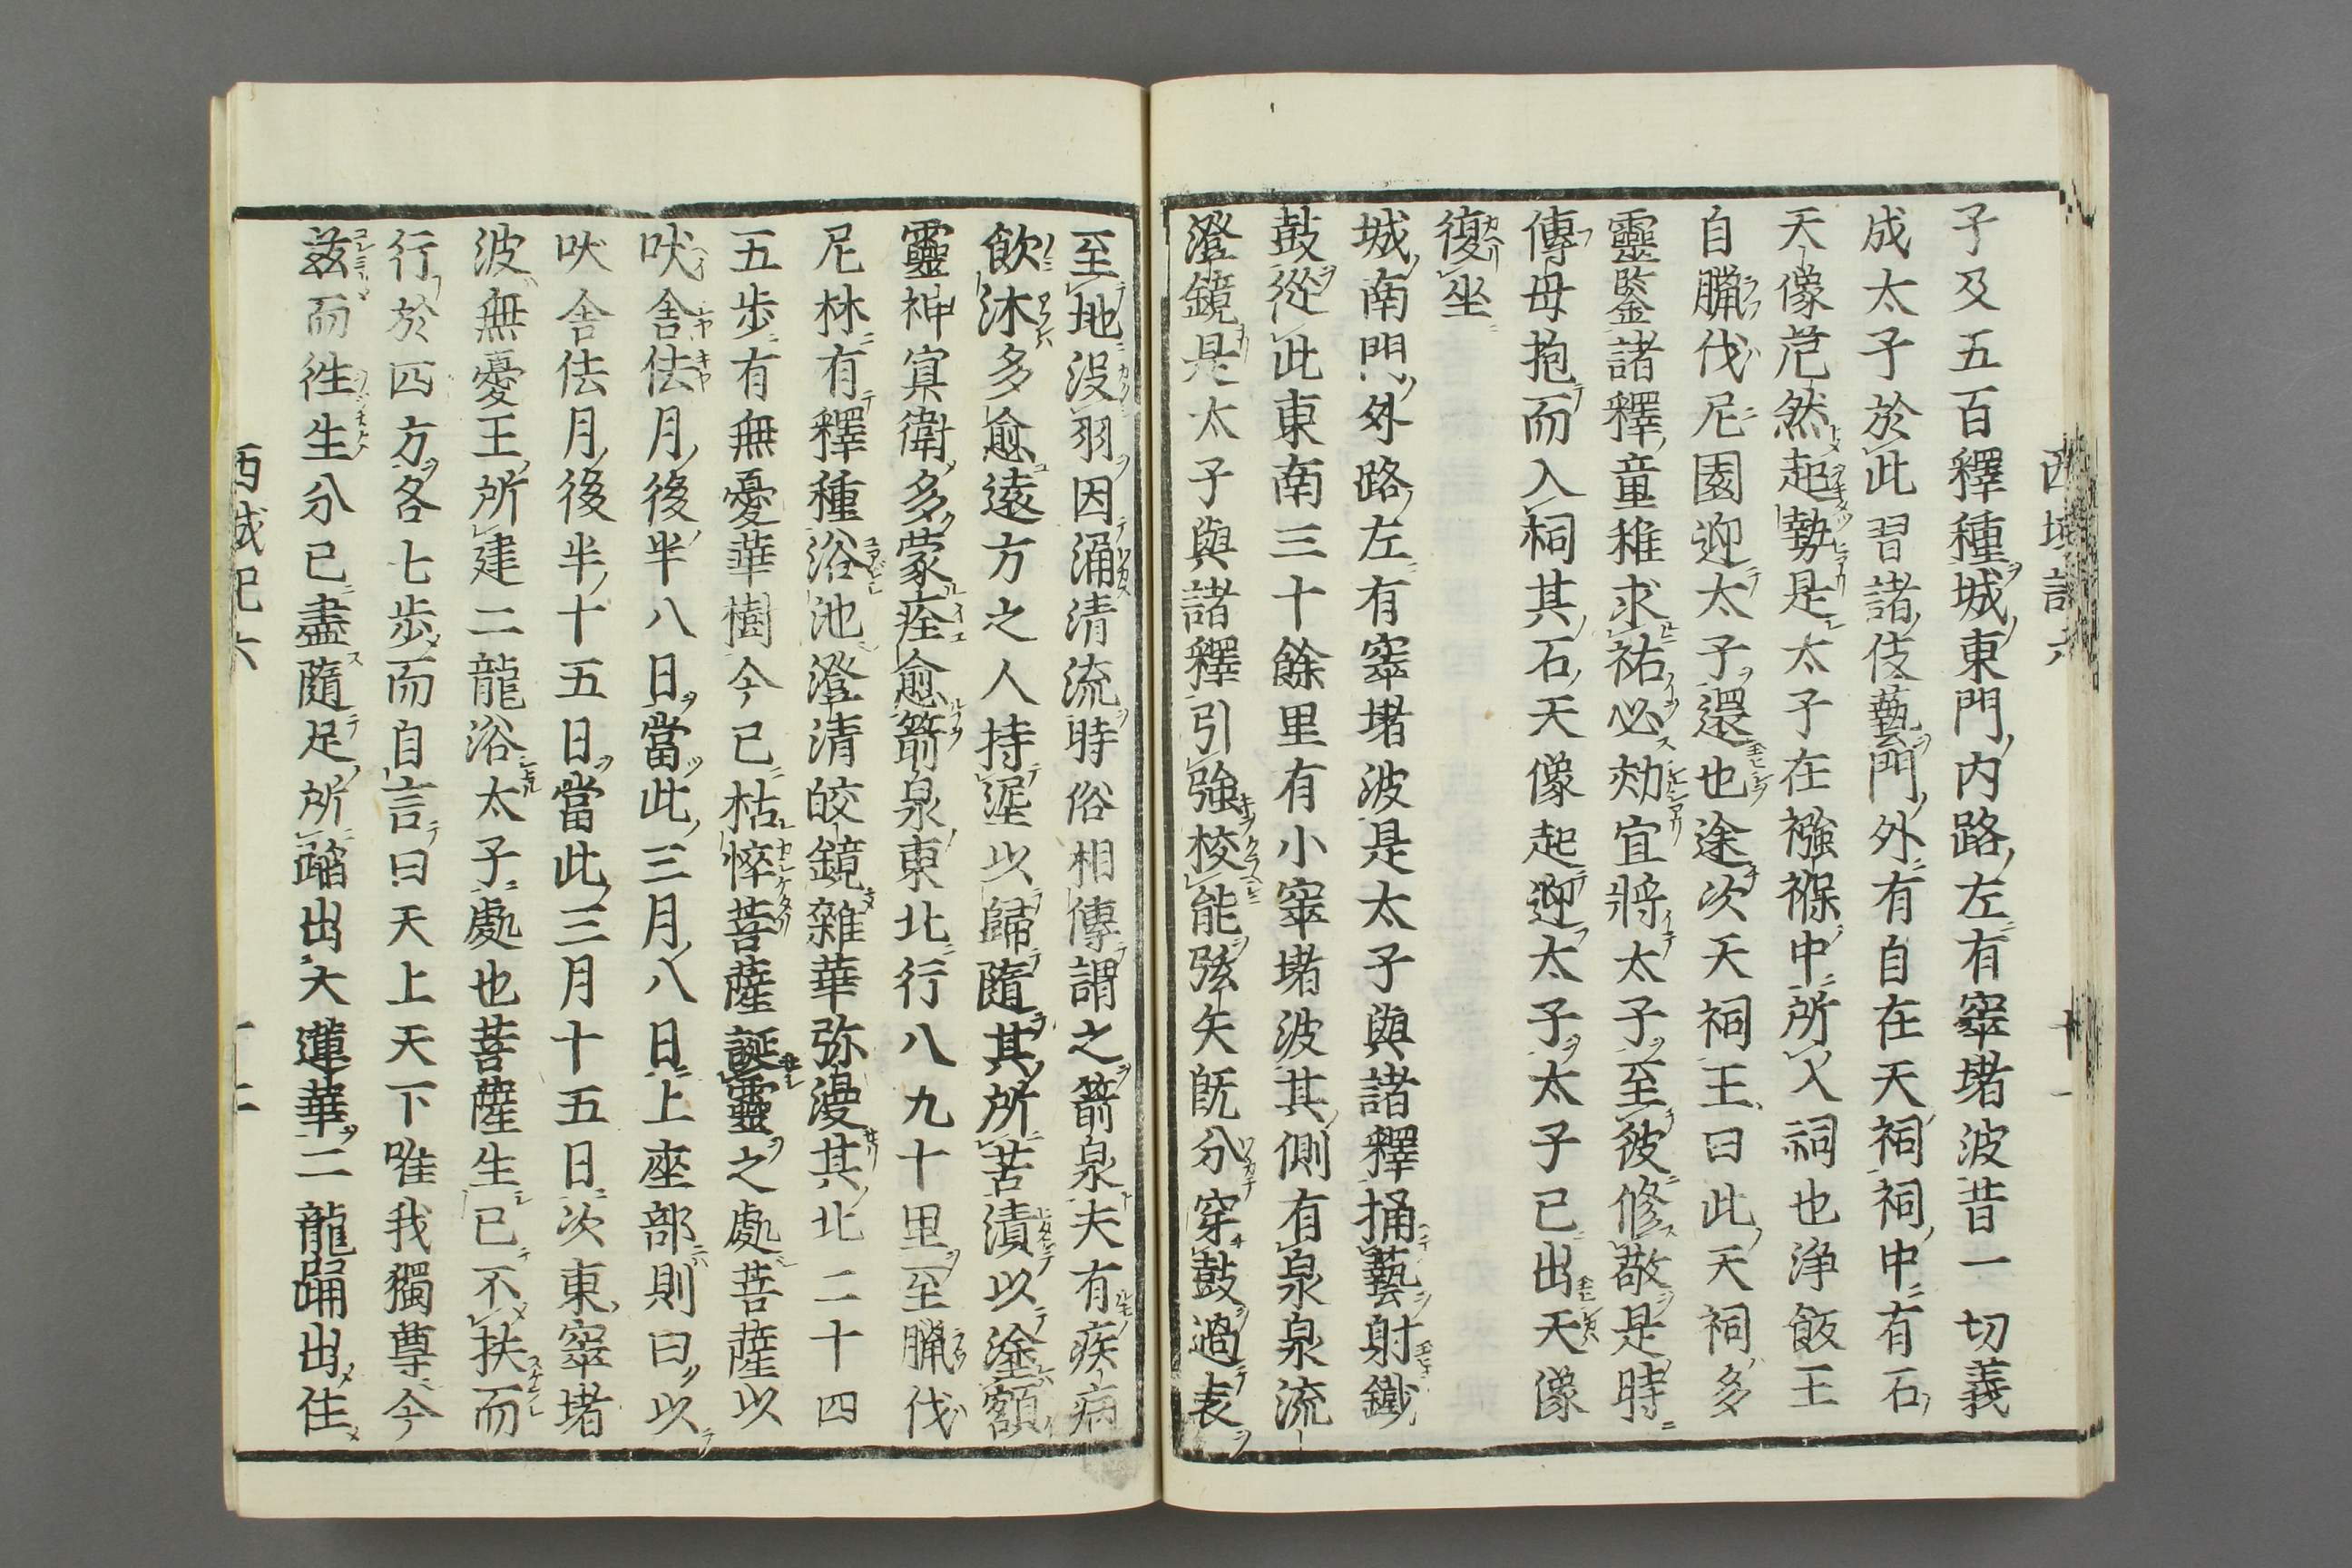 西域記六
十一
子及五百釋種城東門内路左有窣堵波昔一切義
成太子於此習諸伎藝門外有自在天祠祠中有石
天像危然起勢是太子在襁褓中所入祠也淨飯王
自臘伐尼園迎太子還也途次天祠王曰此天祠多
靈鑒諸釋童稚求祐必効宜將太子至彼修敬是時
傅母抱而入祠其石天像起迎太子太子已出天像
復坐
城南門外路左有窣堵波是太子與諸釋捔藝射鐵
鼓從此東南三十餘里有小窣堵波其側有泉泉流
澄鏡是太子與諸釋引強校能弦矢既分穿鼓過表
至地没羽因涌清流時俗相傳謂之箭泉夫有疾病
飲沐多愈遠方之人持泥以歸隨其所苦漬以塗額
靈神冥衛多蒙痊愈箭泉東北行八九十里至臘伐
尼林有釋種浴池澄清皎鏡雜華弥漫其北二十四
五步有無憂華樹今已枯悴菩薩誕靈之處菩薩以
吠舍佉月後半八日當此三月八日上座部則曰以
吠舍佉月後半十五日當此三月十五日次東窣堵
波無憂王所建二龍浴太子處也菩薩生已不扶而
行於四方各七步而自言曰天上天下唯我獨尊今
兹而徃生分已盡隨足所蹈出大蓮華二龍踊出住
西域記六
十二